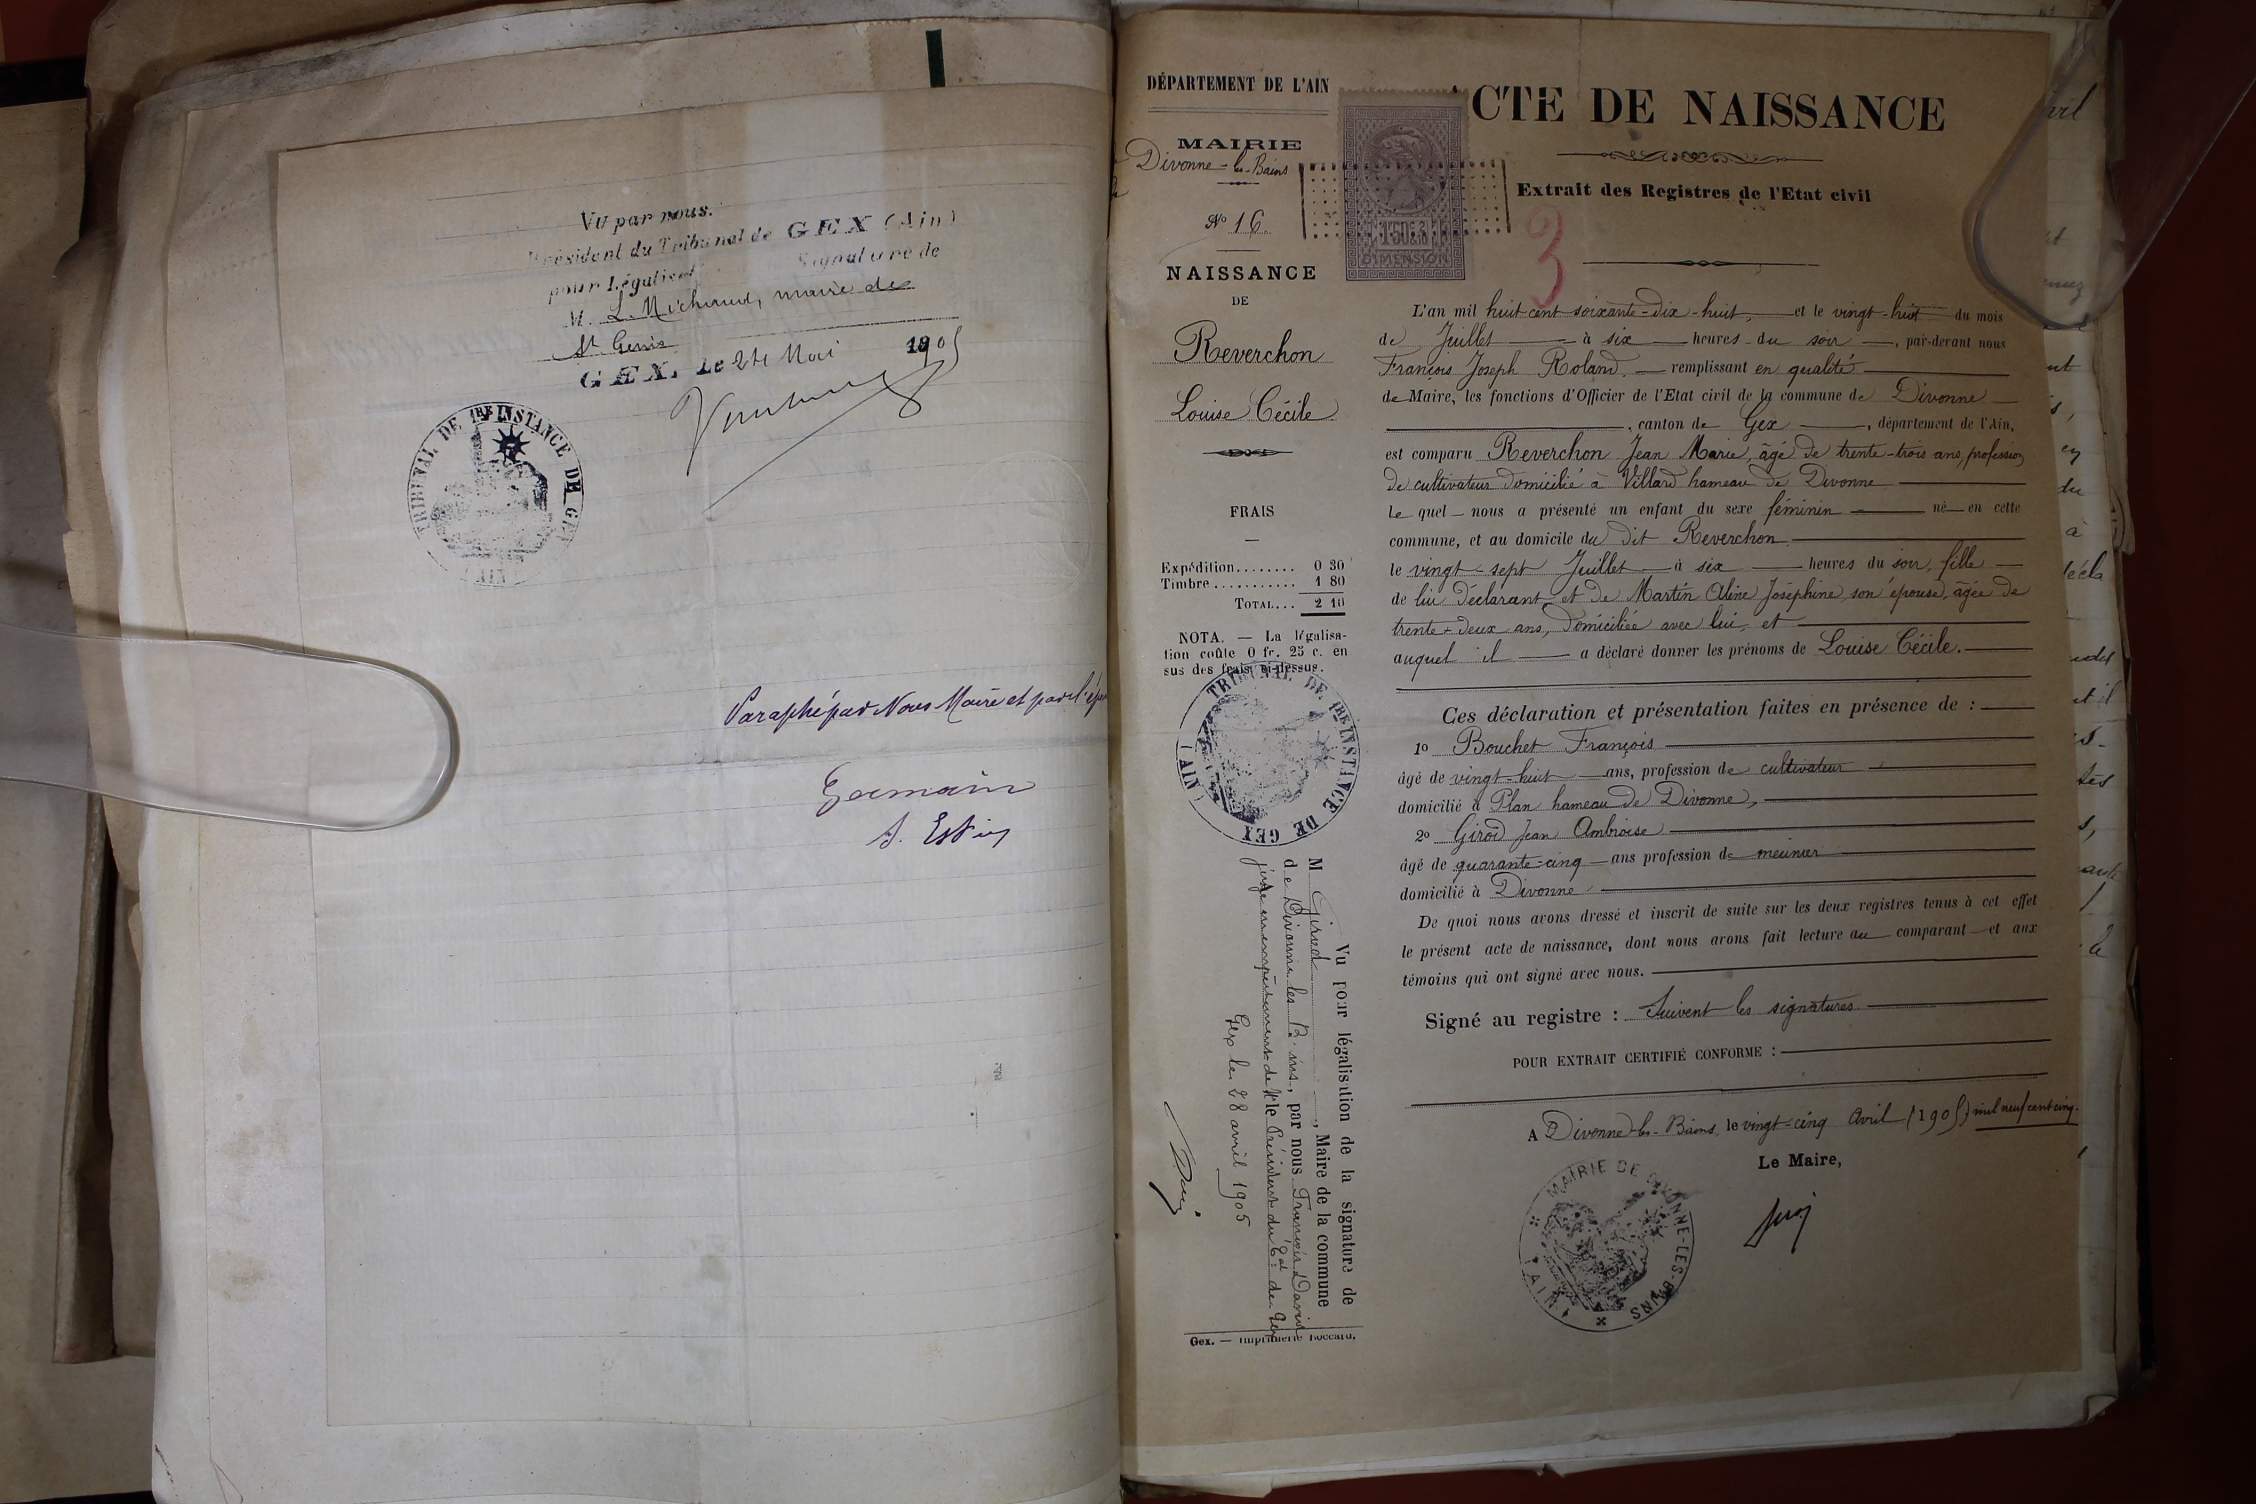 Vu par nous.
Président du Tribunal de GEX (Ain)
pour Légaliser Signature de
M. L. Michaud, maire de
St Genis
GEX, Le 24 Mai 1905
TRIBUNAL DE 1RE INSTANCE DE GEX
AIN
Paraphé par Nous Maire et par l'
Germain
DÉPARTEMENT DE L'AIN
MAIRIE
Divonne-les-Bains
No 16.
NAISSANCE
DE
Reverchon
Louise Cécile
FRAIS
Expédition........ 0 30
Timbre........... 1 80
TOTAL... 2 10
NOTA. — La légalisa-
tion coûte 0 fr. 25 c. en
sus des frais ci-dessus.
TRIBUNAL DE 1RE INSTANCE DE GEX
( AIN )
Vu pour légalisation de la signature de
M Girod, Maire de la commune
de Divonne les Bains, par nous François David
juge en empêchement de Mr le Président du Tal de Gex
Gex le 28 avril 1905
Gex. — Imprimerie Boccard.
ACTE DE NAISSANCE
1f50c
DIMENSION
Extrait des Registres de l'Etat civil
3
L'an mil huit cent soixante-dix-huit, et le vingt-huit du mois
de Juillet à six heures du soir, par-devant nous
François Joseph Roland, remplissant en qualité
de Maire, les fonctions d'Officier de l'Etat civil de la commune de Divonne
, canton de Gex, département de l'Ain,
est comparu Reverchon Jean Marie, âgé de trente-trois ans, profession
de cultivateur domicilié à Villard hameau de Divonne
Le quel nous a présenté un enfant du sexe féminin né en cette
commune, et au domicile du dit Reverchon
le vingt-sept Juillet à six heures du soir, fille
de lui déclarant et de Martin Aline Joséphine son épouse, âgée de
trente-deux ans, domiciliée avec lui, et
auquel il a déclaré donner les prénoms de Louise Cécile.
Ces déclaration et présentation faites en présence de :
1o Bouchet François
âgé de vingt-huit ans, profession de cultivateur
domicilié à Plan hameau de Divonne,
2o Girod Jean Ambroise
âgé de quarante-cinq ans profession de meunier
domicilié à Divonne
De quoi nous avons dressé et inscrit de suite sur les deux registres tenus à cet effet
le présent acte de naissance, dont nous avons fait lecture au comparant et aux
témoins qui ont signé avec nous.
Signé au registre : Suivent les signatures
POUR EXTRAIT CERTIFIÉ CONFORME :
A Divonne-les-Bains, le vingt-cinq Avril (1905) mil neuf cent cinq.
Le Maire,
MAIRIE DE DIVONNE-LES-BAINS
( AIN )